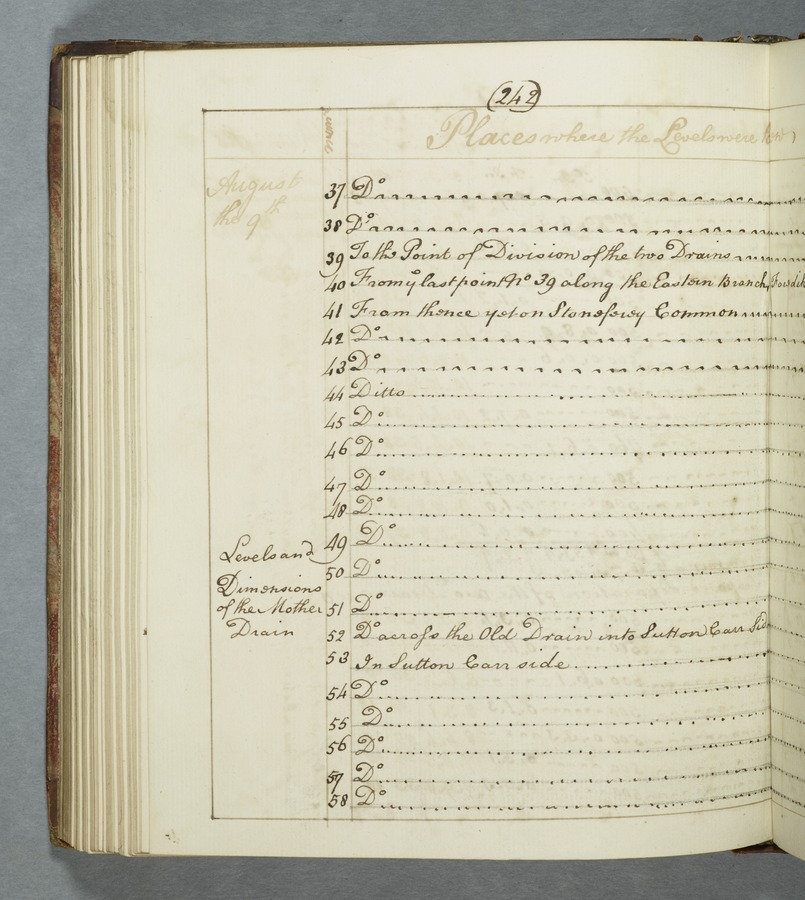 (242)
Places where the Levels were
August
the 9th
37 Do
38 Do
39 To the Point of Division of the two Drains
40 From ye last point No 39 along the Eastern Branch
41 From thence yet on Stoneferey Common
42 Do
43 Do
44 Ditto
45 Do
46 Do
47 Do
48 Do
49 Do
50 Do
Levels and
Dimensions
of the Mother
Drain
51 Do
52 Do across the Old Drain into Sutton Carr Side
53 In Sutton Carr side
54 Do
55 Do
56 Do
57 Do
58 Do